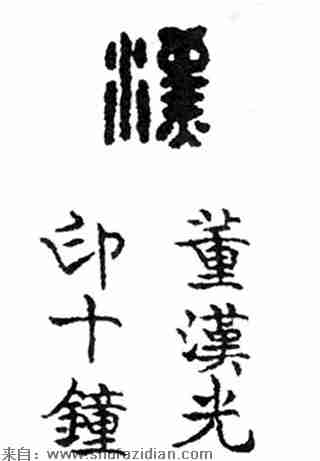 漢
董漢光
印十鐘
来自：www.shufazidian.com